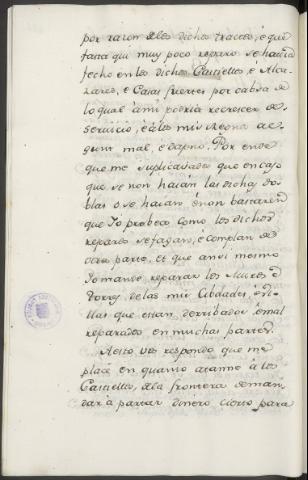 por razon de los dichos tractos, é que
fasta qui muy poco reparo se havia
fecho en los dichos Castiellos é Alca-
zares, e Casas fuertes por cabsa de
lo qual á mi podria recrescer de-
servicio, é á los mis Regnos al-
gunt mal, é dapno. Por ende
que me suplicavades que en caso
que se non haian las dichas do-
blas ó se haian é non bastaren
que Yo probea como los dichos
reparos se fagan, é complan de
otra parte. Et que ansi mesmo
Yo mande reparar los Muros é
Torres de las mis Cibdades, é Vi-
llas que estan derribados é mal
reparados en muchas partes.
A esto vos respondo que me
place en quanto atanne á los
Castiellos de la frontera de man-
dar á partar dinero cierto para